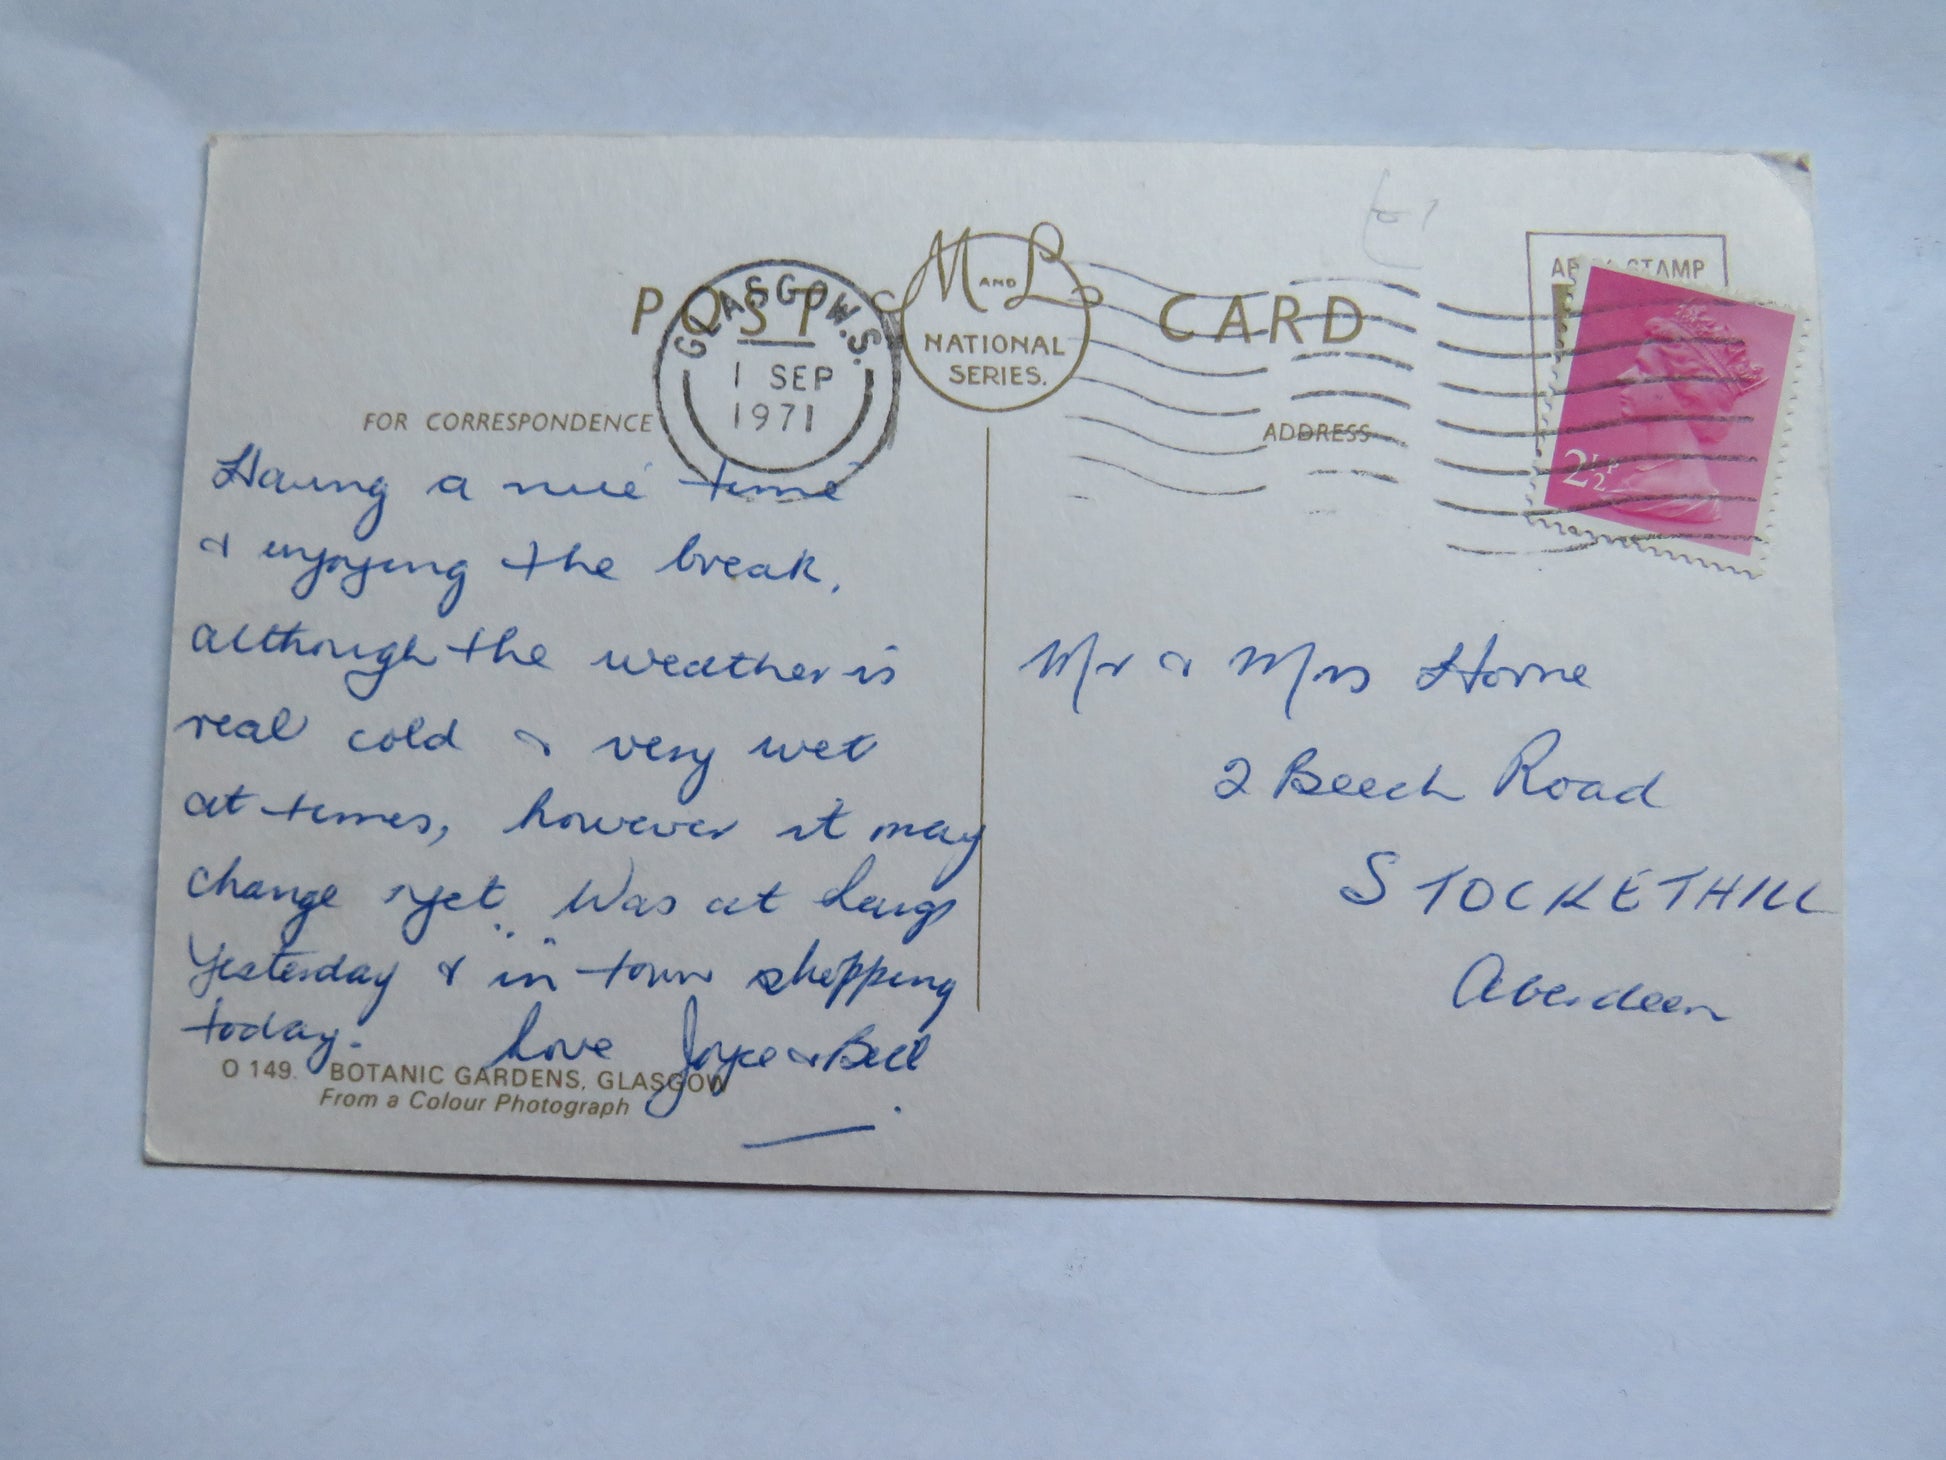 POST CARD
M AND L
NATIONAL
SERIES.
GLASGOW. S.
1 SEP
1971
STAMP
2½P
FOR CORRESPONDENCE
ADDRESS
Having a nice time
& enjoying the break,
although the weather is
real cold & very wet
at times, however it may
change yet. Was at Largs
Yesterday & "in town shopping
today. Love Joyce & Bill
O 149. BOTANIC GARDENS, GLASGOW
From a Colour Photograph
Mr & Mrs Horne
2 Beech Road
STOCKETHILL
Aberdeen